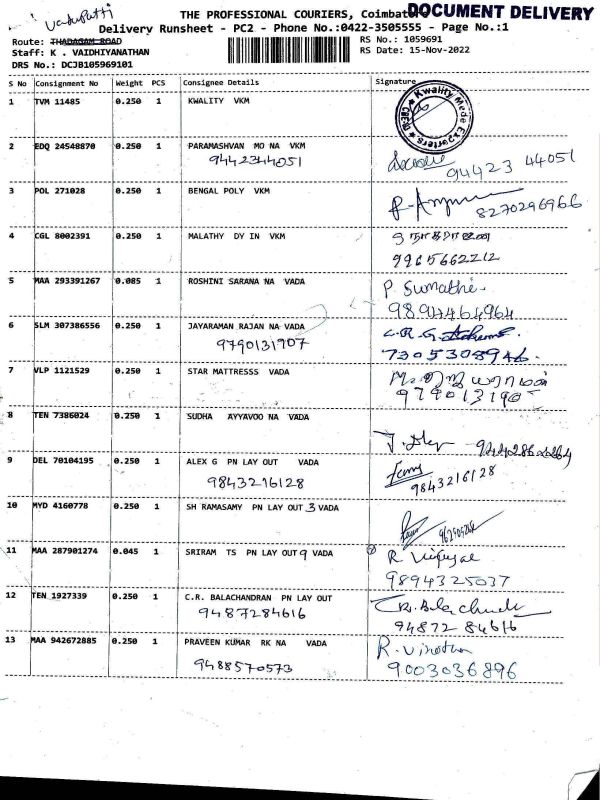 Vadupatti
THE PROFESSIONAL COURIERS, Coimbatore
DOCUMENT DELIVERY
Delivery Runsheet - PC2 - Phone No.:0422-3505555 - Page No.:1
Route: THADAGAM ROAD
RS No.: 1059691
Staff: K . VAIDHIYANATHAN
RS Date: 15-Nov-2022
DRS No.: DCJB105969101
S No Consignment No Weight PCS Consignee Details Signature
1 TVM 11485 0.250 1 KWALITY VKM
Kwality Mede Exporters
2 EDQ 24548870 0.250 1 PARAMASHVAN MO NA VKM
9442344051
94423 44051
3 POL 271028 0.250 1 BENGAL POLY VKM
8270296966
4 CGL 8002391 0.250 1 MALATHY DY IN VKM
9965662212
5 MAA 293391267 0.085 1 ROSHINI SARANA NA VADA
P Sumathi.
9894464964
6 SLM 307386556 0.250 1 JAYARAMAN RAJAN NA VADA
9790131907
7305308946.
7 VLP 1121529 0.250 1 STAR MATTRESSS VADA
8 TEN 7386024 0.250 1 SUDHA AYYAVOO NA VADA
9 DEL 70104195 0.250 1 ALEX G PN LAY OUT VADA
9843216128
9843216128
10 MYD 4160778 0.250 1 SH RAMASAMY PN LAY OUT 3 VADA
11 MAA 287901274 0.045 1 SRIRAM TS PN LAY OUT 9 VADA
9894325037
12 TEN 1927339 0.250 1 C.R. BALACHANDRAN PN LAY OUT
9487284616
94872 84616
13 MAA 942672885 0.250 1 PRAVEEN KUMAR RK NA VADA
9488570573
R. Vinothan
9003036896